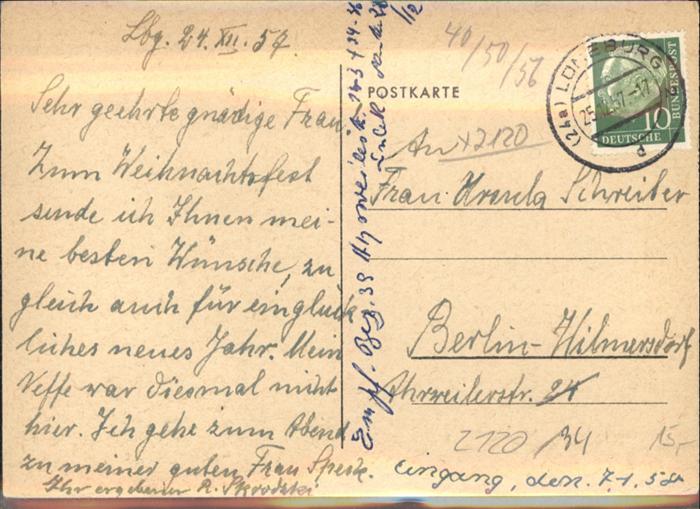 Lbg. 24. XII. 57
Sehr geehrte gnädige Frau,
Zum Weihnachtsfest
sende ich Ihnen mei-
ne besten Wünsche, zu
gleich auch für ein glück
liches neues Jahr. Mein
Neffe war diesmal nicht
hier. Ich gehe zum Abend
zu meiner guten Frau Speck.
Ihr ergebener R. Skrodzki
Empf. Bez. 39
40/50/56
POSTKARTE
An
x2120
Frau Ursula Schreiber
Berlin-Wilmersdorf
Ahrweilerstr. 24
2120
34
15,-
Eingang, den 7.1.58
(24a) LÜNEBURG
25.12.57.-17
d
10
DEUTSCHE
BUNDESPOST